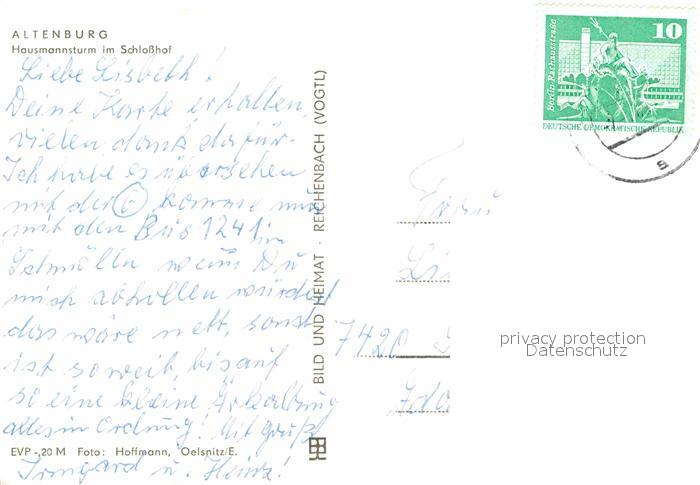 ALTENBURG
Hausmannsturm im Schloßhof
Liebe Lisbeth!
Deine Karte erhalten,
vielen dank dafür.
Ich habe es übersehen
mit der 6 komme nur
mit den Bus 1241 in
Schmölln wenn Du
mich abhollen würdest
das wäre nett, sonst
ist soweit bis auf
so eine kleine Erkältung
alles in Ordnung! Mit Gruß
Irmgard u. Heinz!
EVP -,20 M Foto: Hoffmann, Oelsnitz/E.
BILD UND HEIMAT · REICHENBACH (VOGTL)
Berlin-Rathausstraße
10
DEUTSCHE DEMOKRATISCHE REPUBLIK
Frau
7420
privacy protection
Datenschutz